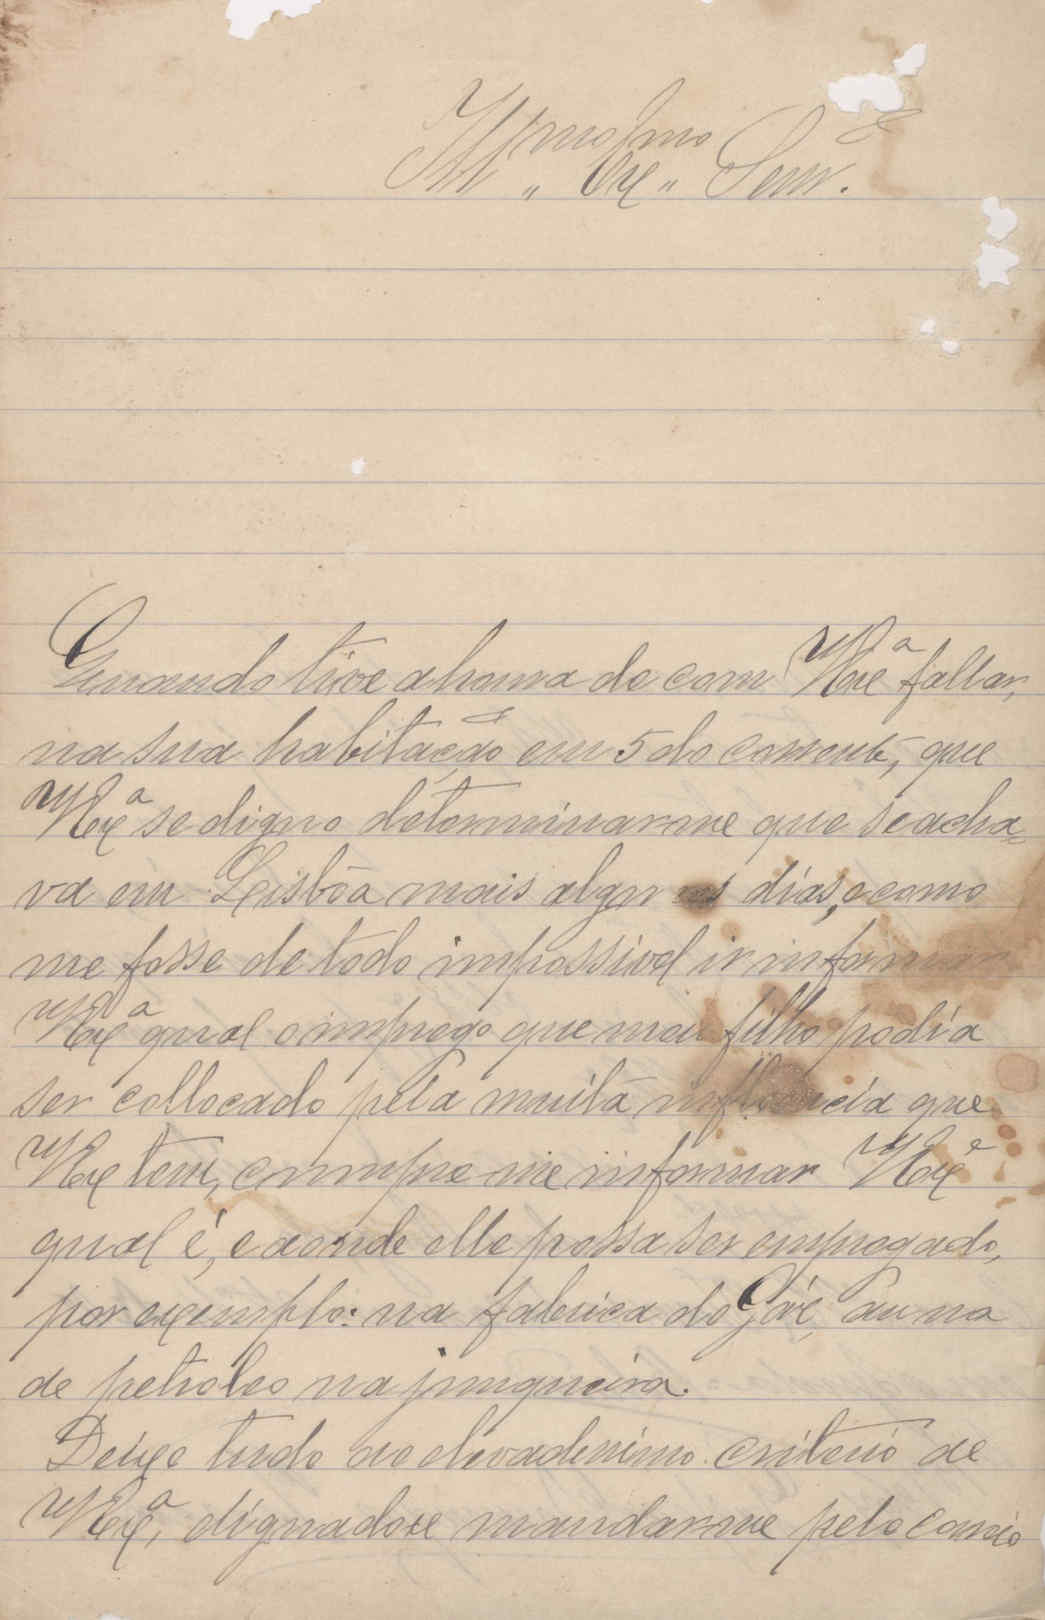 Ill.mo Ex.mo Senr.
Quando tive a honra de com V Exª fallar,
na sua habitação em 5 do corrente, que
V Exª se digno determinar-me que se acha-
va em Lisbôa mais algu nes dias, e como
me fosse de todo impossivel ir informar
V Exª qual o imprego que meu filho podia
ser collocado pela muita influencia que
V Ex tem, cumpre-me informar V Exª
qual é, e aonde elle possa ser empregado,
por exemplo: na fabrica do Gaz, ou na
de petroleo na junqueira.
Deixo tudo ao elevadesimo criterio de
V Exª, dignadose mandar-me pelo correio